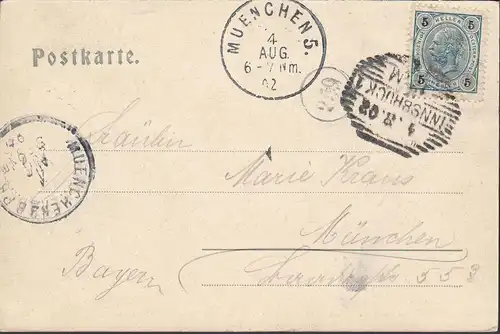 MUENCHEN 5.
4
AUG.
6-7 Nm.
02
5 HELLER 5
5 5
Postkarte.
INNSBRUCK 1
4. 8. 02
MUENCHEN
Fräulein
Marie Kraus
München
Bayern